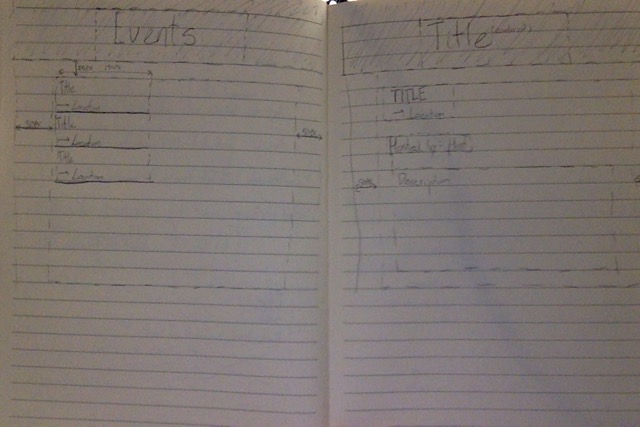 Events
Title
→ Location
Title
→ Location
Title
→ Location
Title
TITLE
→ Location
Hosted by Host
Description